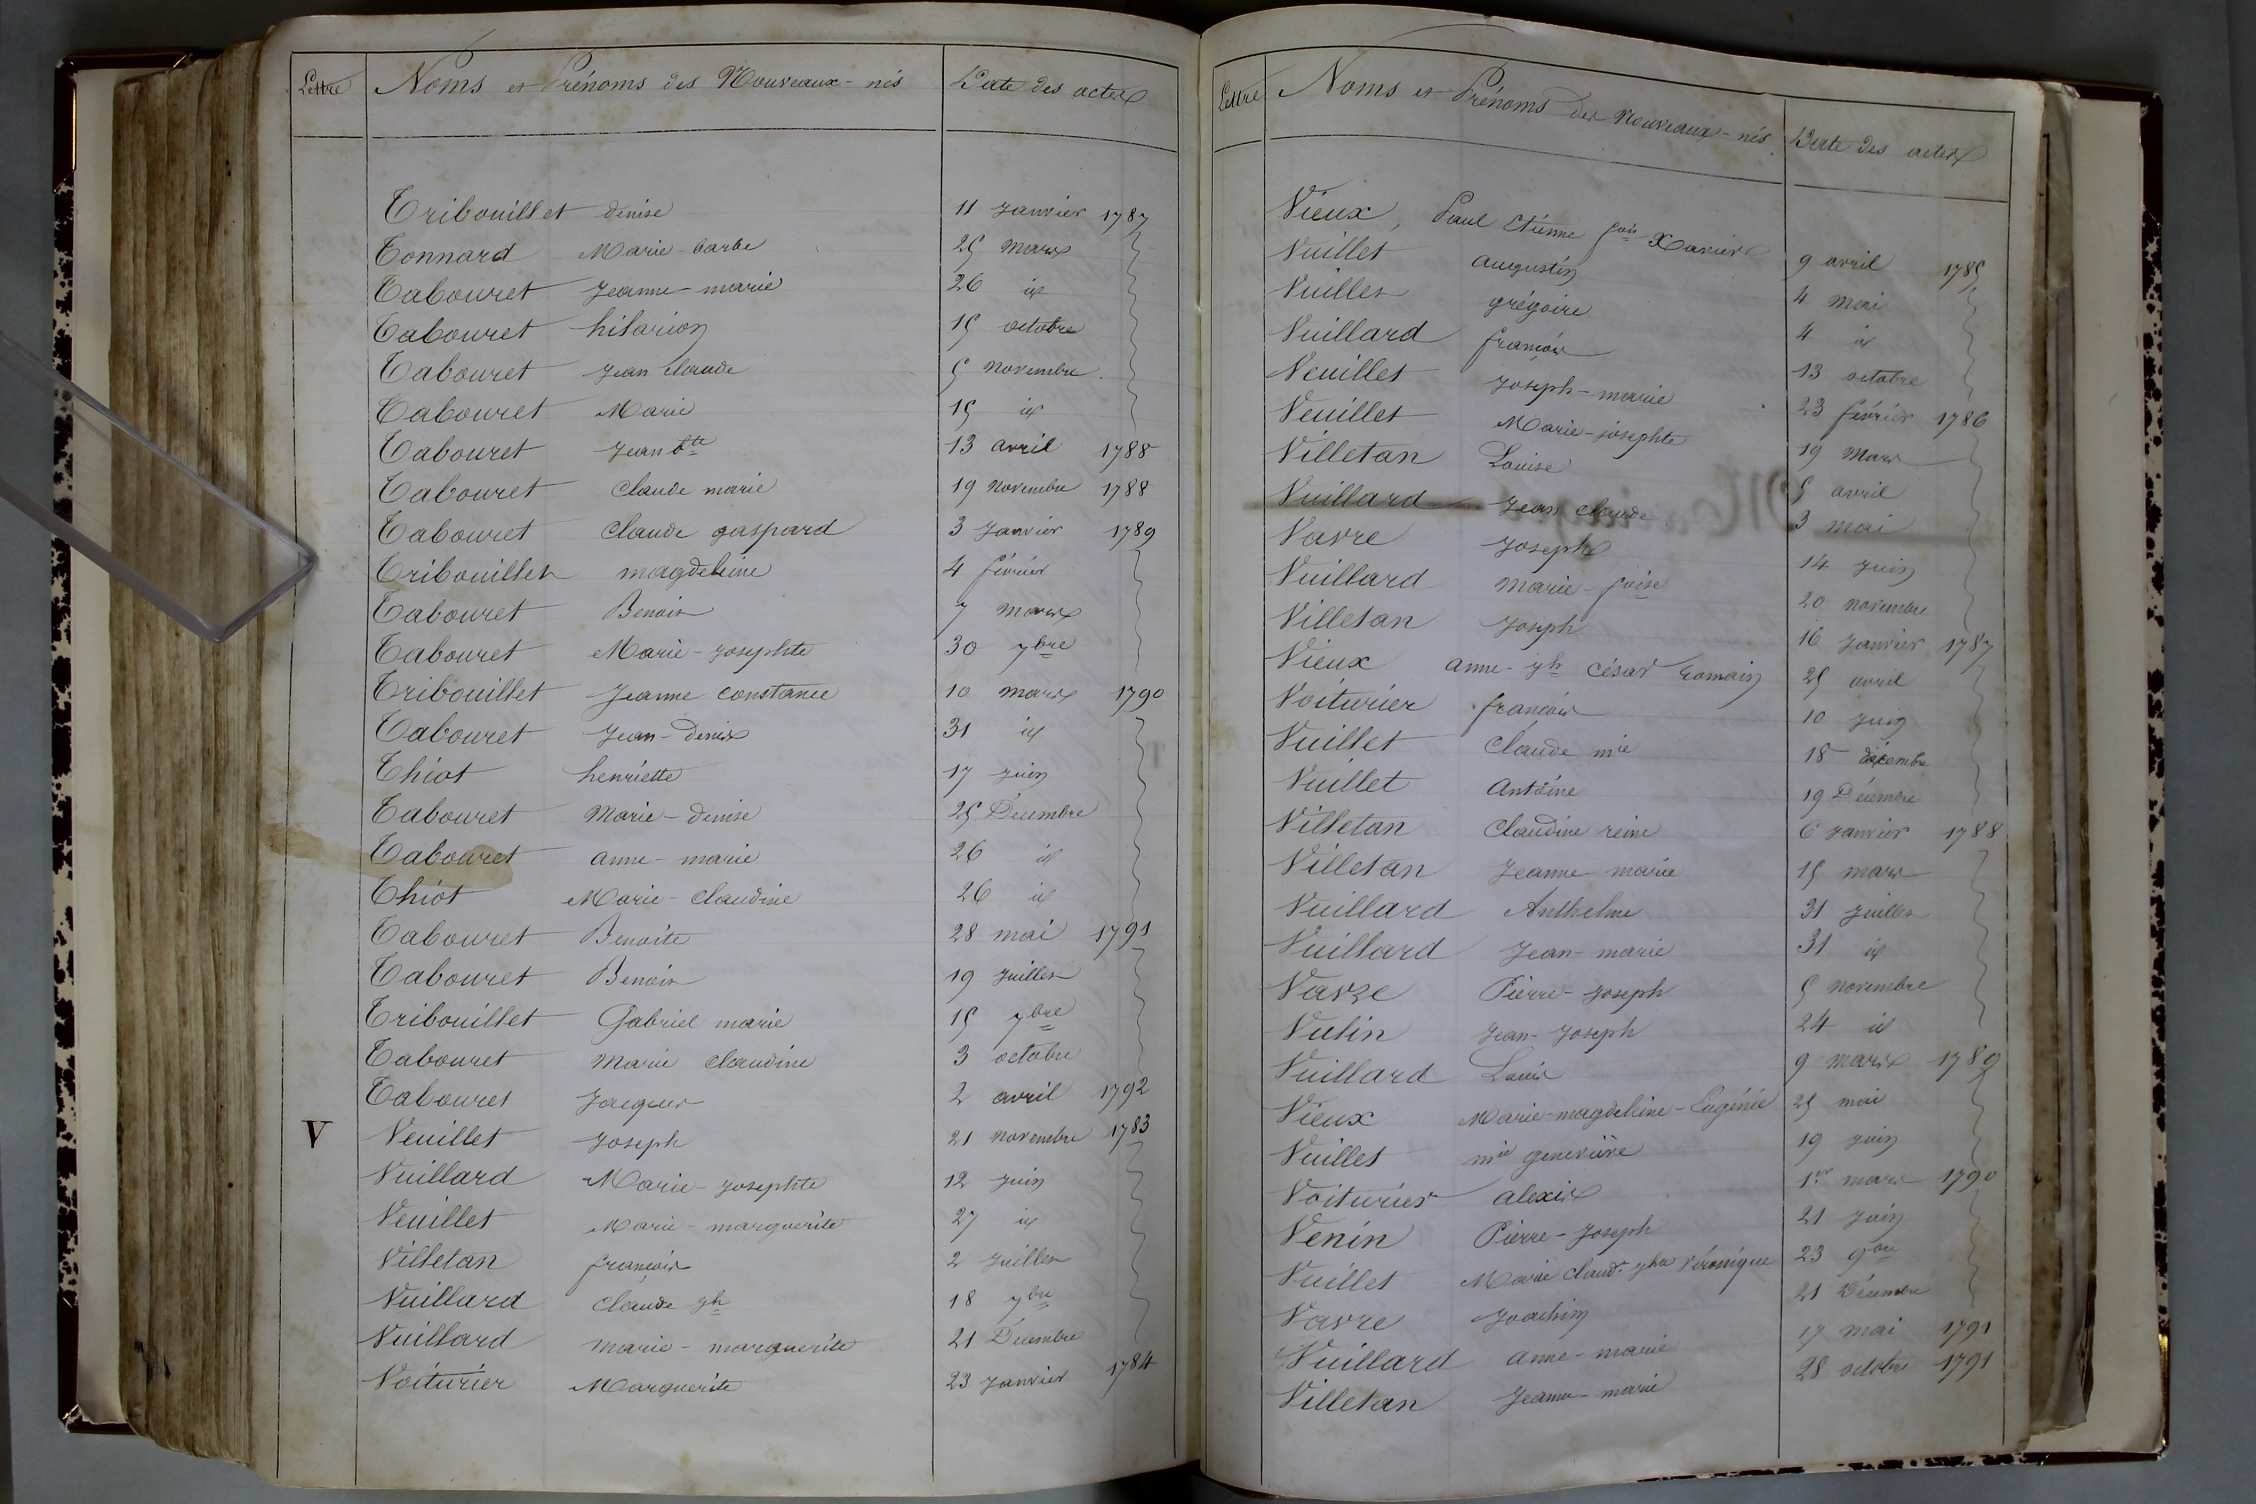 Lettre Noms et Prénoms des Nouveaux-nés Date des actes
Tribouillet denise 11 Janvier 1787
Tonnard Marie-barbe 25 Mars
Tabouret Jeanne-marie 26 id
Tabouret hilarion 15 octobre
Tabouret Jean Claude 5 Novembre
Tabouret Marie 15 id
Tabouret Jean Bte 13 avril 1788
Tabouret Claude marie 19 Novembre 1788
Tabouret Claude gaspard 3 Janvier 1789
Tribouillet magdeleine 4 février
Tabouret Benoit 7 Mars
Tabouret Marie-Josephte 30 7bre
Tribouillet Jeanne constance 10 Mars 1790
Tabouret Jean-Denis 31 id
Thiot henriette 17 juin
Tabouret Marie-Denise 25 Décembre
Tabouret anne-marie 26 id
Thiot Marie-Claudine 26 id
Tabouret Benoite 28 mai 1791
Tabouret Benoit 19 Juillet
Tribouillet Gabriel marie 15 7bre
Tabouret Marie Claudine 3 octobre
Tabouret Jacques 2 avril 1792
V Veuillet Joseph 21 Novembre 1783
Vuillard Marie-Josephte 12 Juin
Veuillet Marie-marguerite 27 id
Villetan françois 2 Juillet
Vuillard Claude jh 18 7bre
Vuillard Marie-marguerite 21 Décembre
Voiturier Marguerite 23 Janvier 1784
Lettre Noms et Prénoms des Nouveaux-nés Date des actes
Vieux, Paul Etienne fois Xavier 9 avril 1785
Vuillet augustin 4 mai
Vuillet grégoire 4 id
Vuillard françois 13 octobre
Veuillet Joseph-marie 23 février 1786
Veuillet Marie-josephte 19 Mars
Villetan Louise 5 avril
Vuillard Jean claude 3 mai
Vavre Joseph 14 Juin
Vuillard Marie-foise 20 novembre
Villetan Joseph 16 Janvier 1787
Vieux anne-jh César Romain 25 avril
Voiturier françois 10 Juin
Vuillet Claude mie 18 décembre
Vuillet Antoine 19 Décembre
Villetan Claudine reine 6 Janvier 1788
Villetan Jeanne marie 15 mars
Vuillard Anthelme 31 Juillet
Vuillard Jean-marie 31 id
Vavre Pierre-Joseph 5 novembre
Vutin Jean-Joseph 24 id
Vuillard Louis 9 mars 1789
Vieux Marie-magdeleine-Eugénie 25 mai
Vuillet mie geneviève 19 juin
Voiturier alexis 1er mars 1790
Venin Pierre-Joseph 21 juin
Vuillet Marie Claud. Véronique 23 9bre
Vavre Joachim 21 Décembre
Vuillard anne-marie 17 mai 1791
Villetan Jeanne-marie 28 octobre 1791